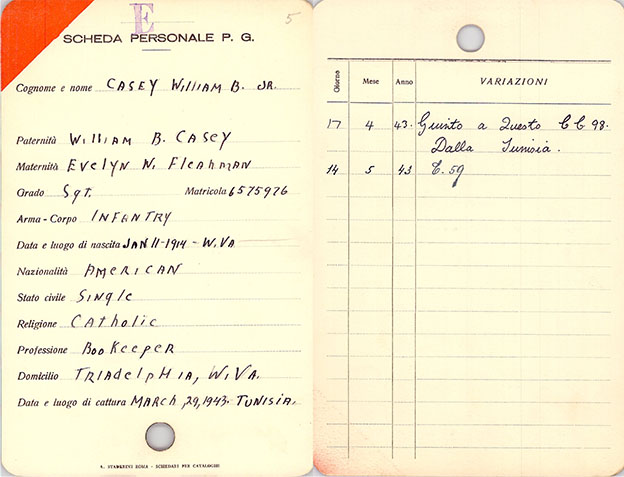 E
5
SCHEDA PERSONALE P. G.
Cognome e nome CASEY WILLIAM B. JR.
Paternità WILLIAM B. CASEY
Maternità EVELYN N. FLEAHMAN
Grado Sgt. Matricola 6575926
Arma - Corpo INFANTRY
Data e luogo di nascita JAN 11-1914 - W.VA
Nazionalità AMERICAN
Stato civile SINGLE
Religione CATHOLIC
Professione BOOKEEPER
Domicilio TRIADELPHIA, W.VA.
Data e luogo di cattura MARCH, 29, 1943. TUNISIA.
ROMA - SCHEDARI PER CATALOGHI
Giorno Mese Anno VARIAZIONI
17 4 43. Giunto a Questo C C 98.
Dalla Tunisia.
14 5 43 C. 59